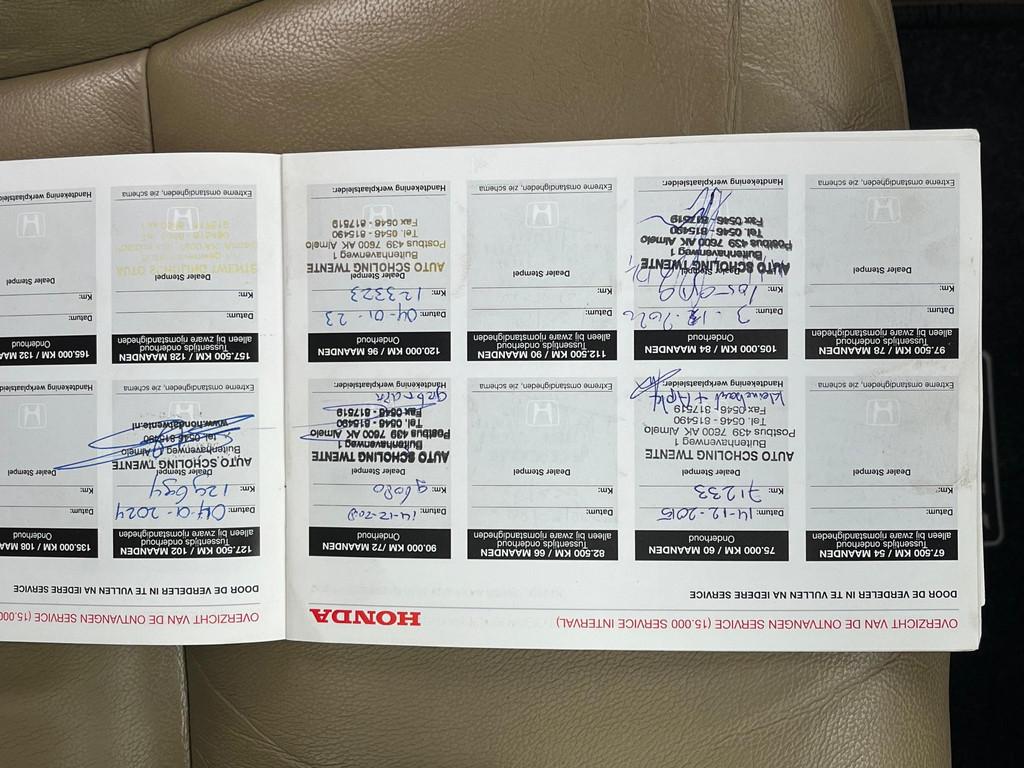 OVERZICHT VAN DE ONTVANGEN SERVICE (15.000 SERVICE INTERVAL)
HONDA
DOOR DE VERDELER IN TE VULLEN NA IEDERE SERVICE
67.500 KM / 54 MAANDEN
Tussentijds onderhoud
alleen bij zware rijomstandigheden
Datum:
Km:
Dealer Stempel
Extreme omstandigheden, zie schema
75.000 KM / 60 MAANDEN
Onderhoud
Datum: 14-12-2015
Km: 71233
Dealer Stempel
AUTO SCHOLING TWENTE
Buitenhavenweg 1
Postbus 439 7600 AK Almelo
Tel. 0546 - 815490
Fax 0546 - 817519
Handtekening werkplaatsleider:
82.500 KM / 66 MAANDEN
Tussentijds onderhoud
alleen bij zware rijomstandigheden
Datum:
Km:
Dealer Stempel
Extreme omstandigheden, zie schema
90.000 KM / 72 MAANDEN
Onderhoud
Datum:
Km:
AUTO SCHOLING TWENTE
Buitenhavenweg 1
Postbus 439 7600 AK Almelo
Tel. 0546 - 815490
Fax 0546 - 817519
Handtekening werkplaatsleider:
97.500 KM / 78 MAANDEN
Tussentijds onderhoud
alleen bij zware rijomstandigheden
Datum:
Km:
Dealer Stempel
Extreme omstandigheden, zie schema
105.000 KM / 84 MAANDEN
Onderhoud
Datum:
Km:
Dealer Stempel
AUTO SCHOLING TWENTE
Buitenhavenweg 1
Postbus 439 7600 AK Almelo
Tel. 0546 - 815490
Fax 0546 - 817519
Handtekening werkplaatsleider:
112.500 KM / 90 MAANDEN
Tussentijds onderhoud
alleen bij zware rijomstandigheden
Datum:
Km:
Dealer Stempel
Extreme omstandigheden, zie schema
120.000 KM / 96 MAANDEN
Onderhoud
Datum: 04-01-23
Km: 123323
Dealer Stempel
AUTO SCHOLING TWENTE
Buitenhavenweg 1
Postbus 439 7600 AK Almelo
Tel. 0546 - 815490
Fax 0546 - 817519
Handtekening werkplaatsleider:
OVERZICHT VAN DE ONTVANGEN SERVICE (15.000
DOOR DE VERDELER IN TE VULLEN NA IEDERE SERVICE
127.500 KM / 102 MAANDEN
Tussentijds onderhoud
alleen bij zware rijomstandigheden
Datum: 04-01-2024
Km: 129694
Dealer Stempel
AUTO SCHOLING TWENTE
Buitenhavenweg 1 Almelo
tel. 0546 815490
www.hondatwente.nl
135.000 KM / 108 MAA
Onderhoud
Datum:
Km:
Dealer Stempel
Handtekening werkplaatsleid
157.500 KM / 128 MAANDEN
Tussentijds onderhoud
alleen bij zware rijomstandigheden
Datum:
Km:
Dealer Stempel
Extreme omstandigheden, zie schema
165.000 KM / 132 MAA
Onderhoud
Datum:
Km:
Dealer Stempel
Handtekening werkplaatsleid